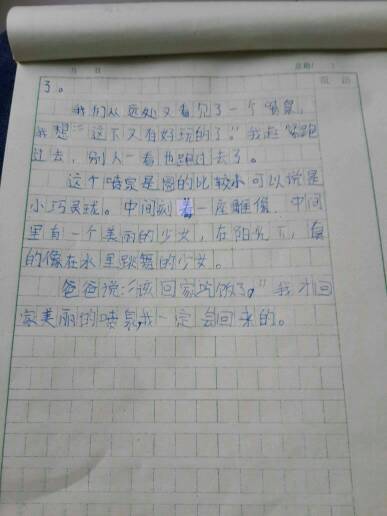 月 日
了。
我们从远处又看见了一个喷泉，
我想："这下又有好玩的了。"我赶紧跑
过去，别人一看也跑过去了。
这个喷泉是圆的比较小可以说是
小巧灵珑。中间刻着一座雕像，中间
里有一个美丽的少女，在阳光下，真
的像在水里跳舞的少女。
爸爸说："该回家吃饭了。"我才回
家美丽的喷泉，我一定会回来的。